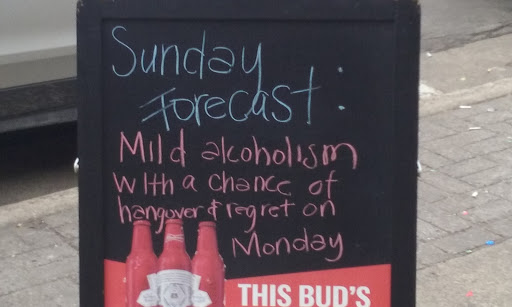 Sunday
Forecast:
Mild alcoholism
with a chance of
hangover & regret on
Monday
THIS BUD'S